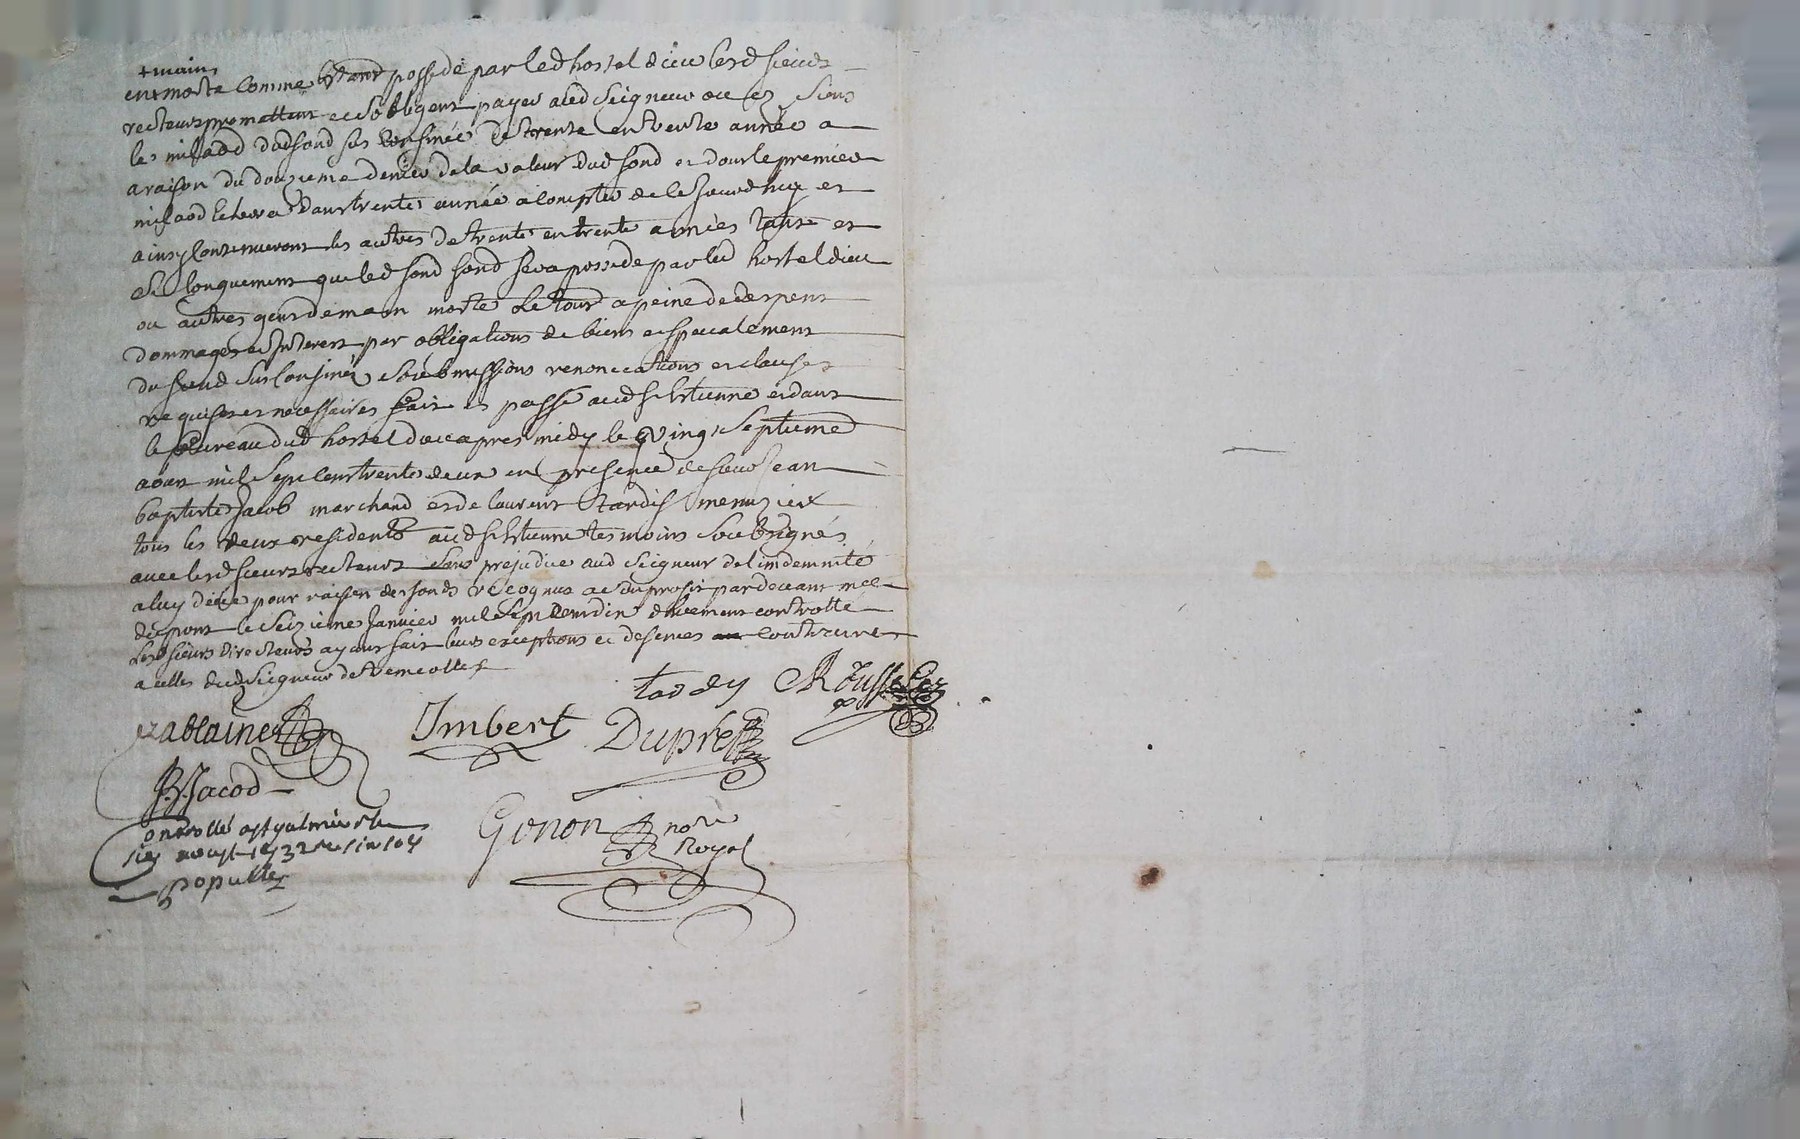 + main
en morte comme estant possedé par led hostel dieu lesd sieurs
recteurs promettent et sobligent payer aud Seigneur ou es siens
les milaod dud fond sus confiné de trente en trente année a
a raison du douzieme denier de la valeur dud fond et dont le premier
milaod echeora dans trente année a compter de ce jourdhuy et
ainsy continueront les autres de trente en trente années tant et
si longuement que led fond fond sera possede par led hostel dieu
ou autres gens de main morte le tout a peine de despens
dommages et interest par obligations de biens et specialement
du fond sus confiné soubmissions renonciations et clauses
requises et necessaires fait et passé aud st Estienne et dans
le bureau dud hostel dieu apres midy le vingt septieme
aoust mil sept cent trente deux en presence de sieur Jean
baptiste Jacob marchand et de laurent tardif menuzier
tous les deux residents aud st Estienne tesmoins soubsignés
avec lesd sieurs recteurs sans prejudice aud Seigneur de lindemnité
a luy deüe pour raison des fonds recognus a son profit pardevant me
dupont le seizieme Janvier mil sept cent dix deuement controllé
lesd sieurs directeurs ayant fait leurs exceptions et defenses contraires
a celles dud Seigneur de
tardy Rousset
Rablaine Imbert Dupré
J.B. Jacod
Gonon no.re
Royal
Controllé a st galmier le
six aoust 1732
populle